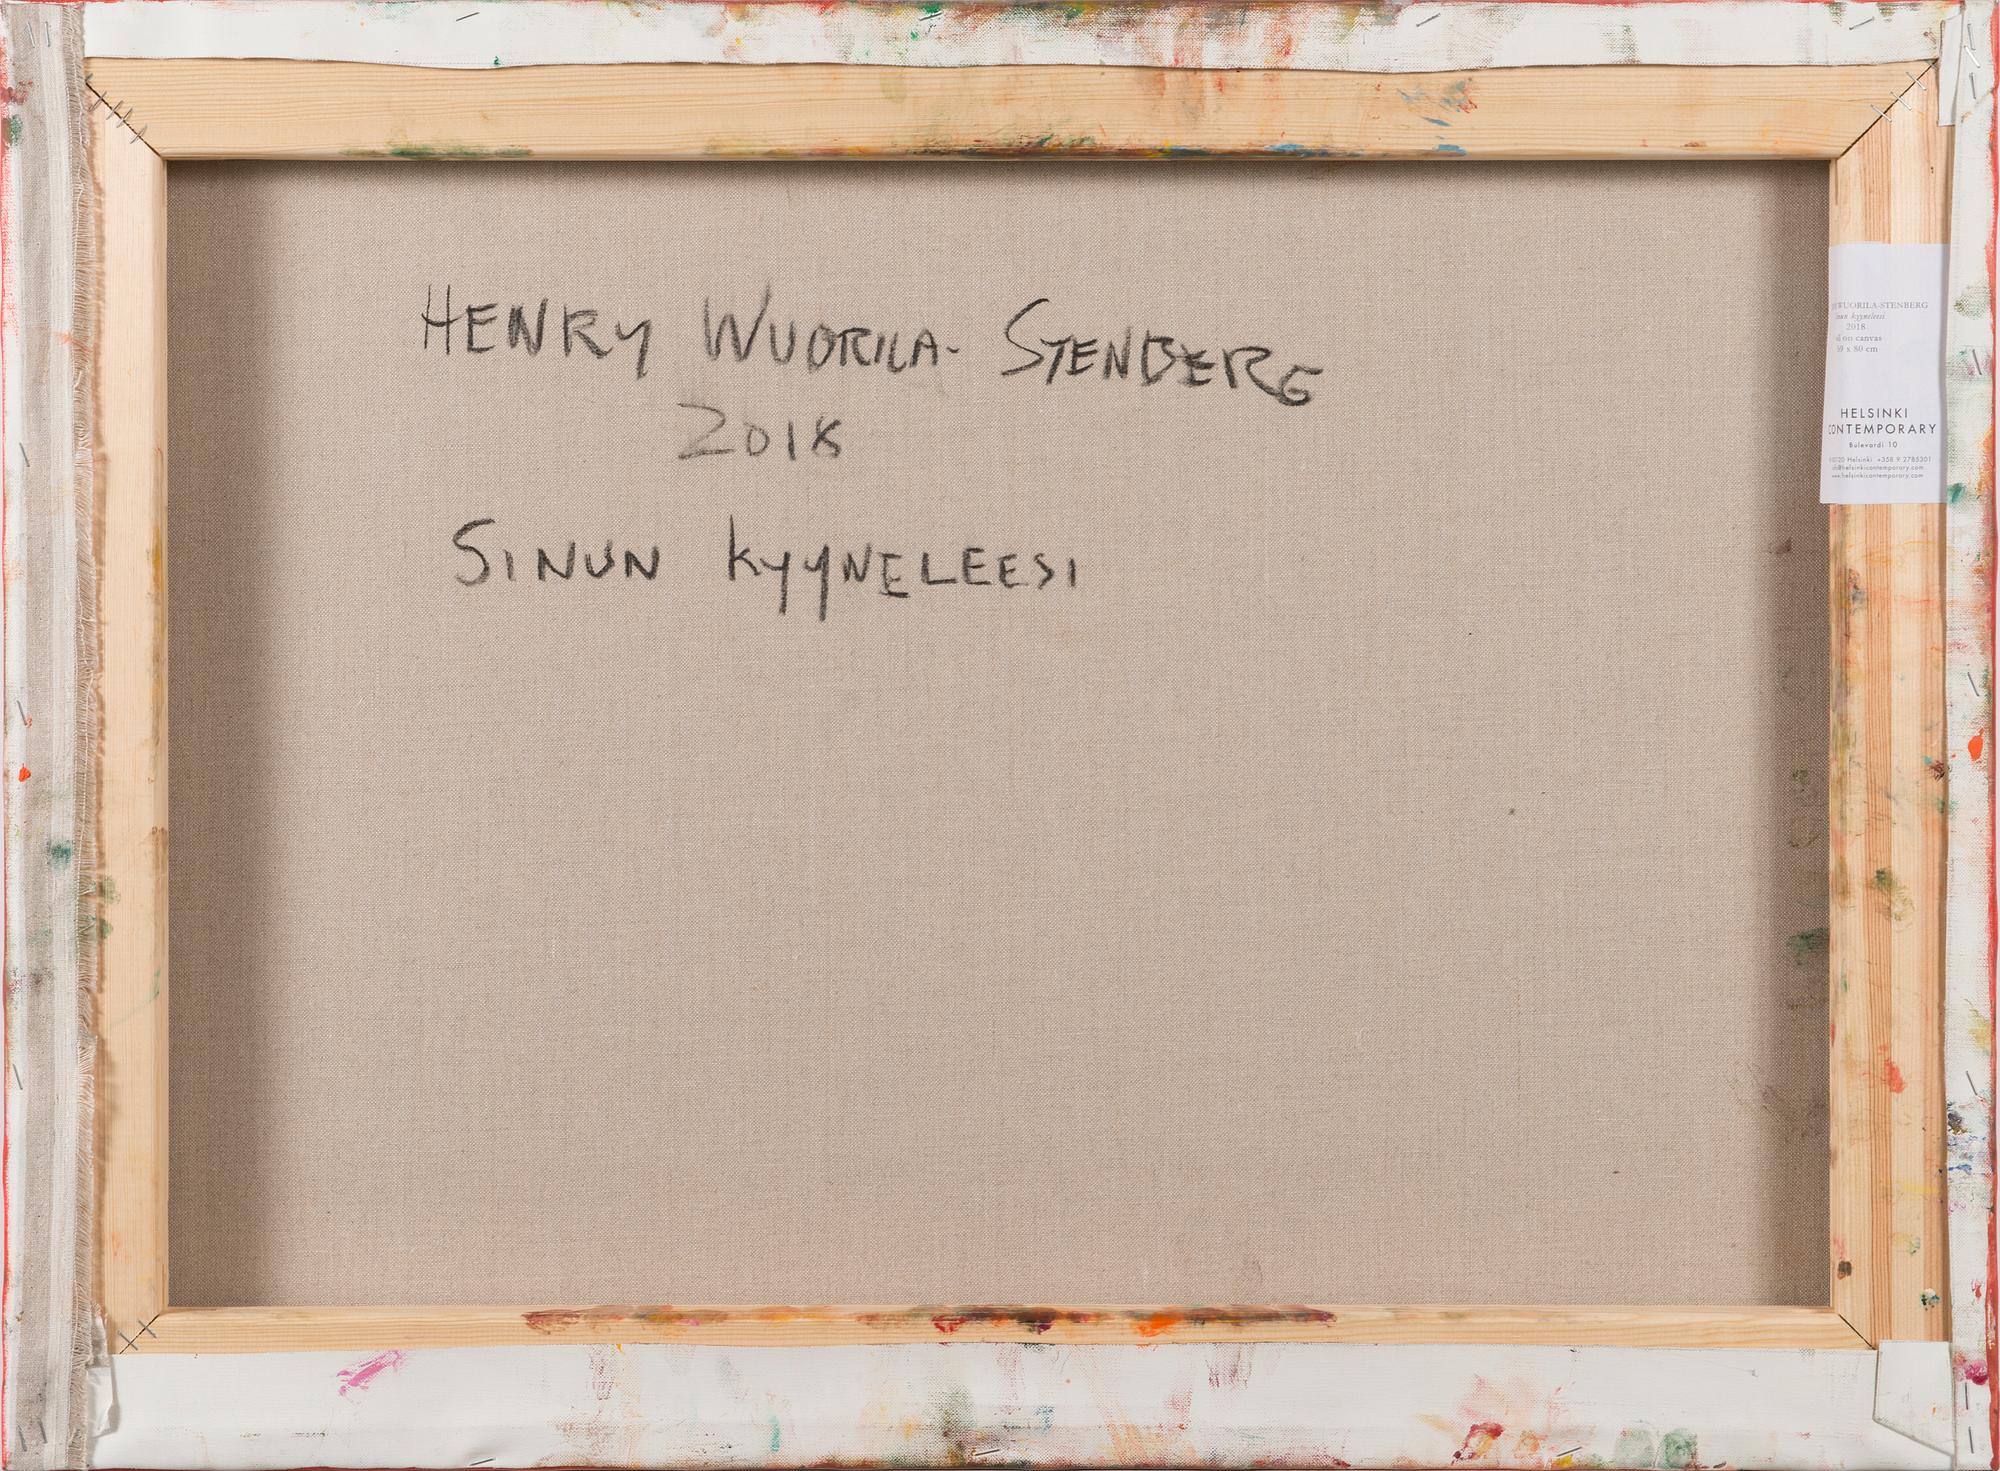 HENRY WUORILA-STENBERG
2018
SINUN KYYNELEESI
WUORILA-STENBERG
kyyneleesi
2018
on canvas
x 80 cm
HELSINKI
CONTEMPORARY
Bulevardi 10
Helsinki +358 9 2785301
helsinkicontemporary.com
helsinkicontemporary.com